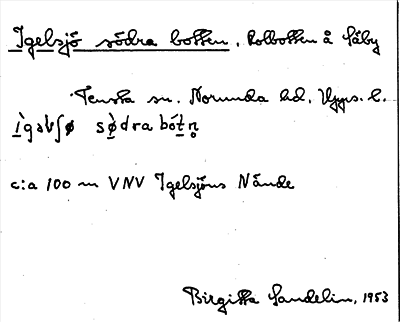 Igelsjö södra botten, Kolbotten å Säby
Tensta sn. Norunda hd. Upps. l.
ìgəlʃø sø̀dra bótn̥
c:a 100 m VNV Igelsjöns N ände
Birgitta Sandelin, 1953